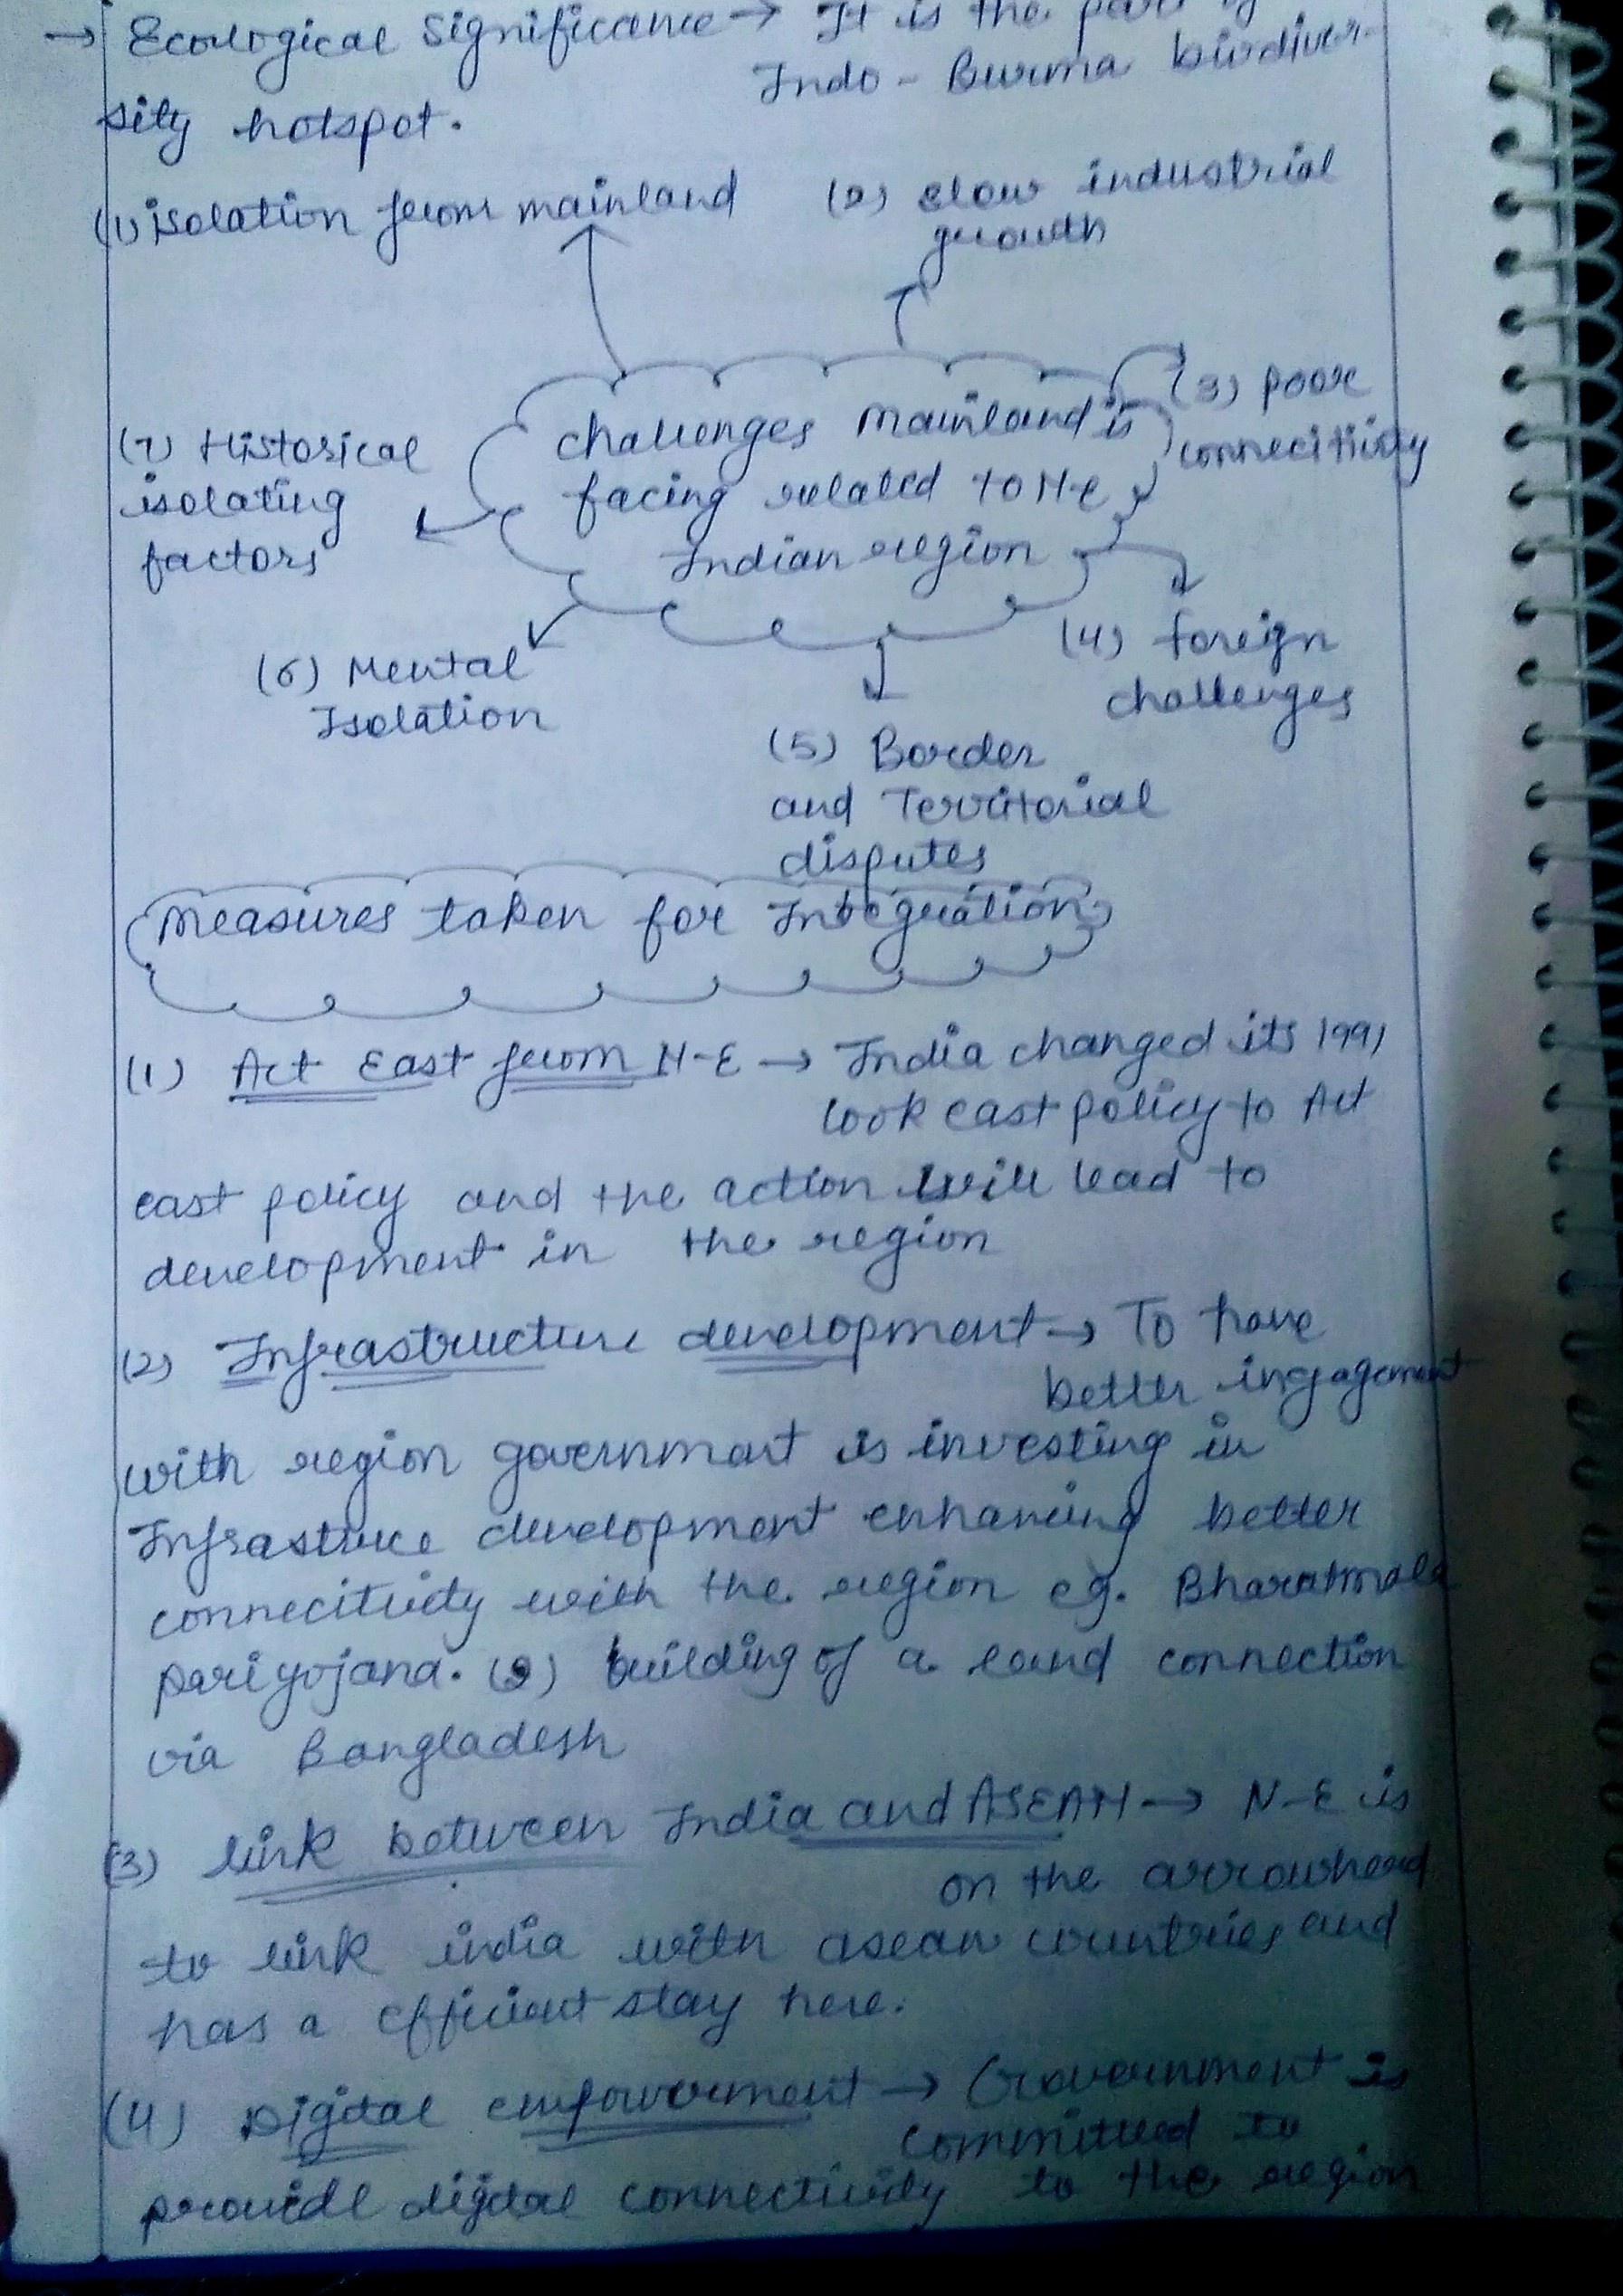 → Ecological Significance → It is the part of
Indo - Burma biodiver-
sity hotspot.
(1) isolation from mainland
(2) slow industrial
growth
challenges mainland is
facing related to N-e
Indian region
(3) poor
connecitivity
(4) foreign
challenges
(5) Border
and Territorial
disputes
(6) Mental
Isolation
(7) Historical
isolating
factors
Measures taken for Integration
(1) Act East from N-E → India changed its 1991
look east policy to Act
east policy and the action will lead to
development in the region
(2) Infrastructure development → To have
better ingagement
with region government is investing in
Infrastruce development enhancing better
connecitivity with the region eg. Bharatmala
pariyojana. (2) building of a land connection
via Bangladesh
(3) link between India and ASEAN → N-E is
on the arrowhead
to link india with asean countries and
has a efficient stay here.
(4) Digital empowerment → Government is
committed to
provide digital connectivity to the region